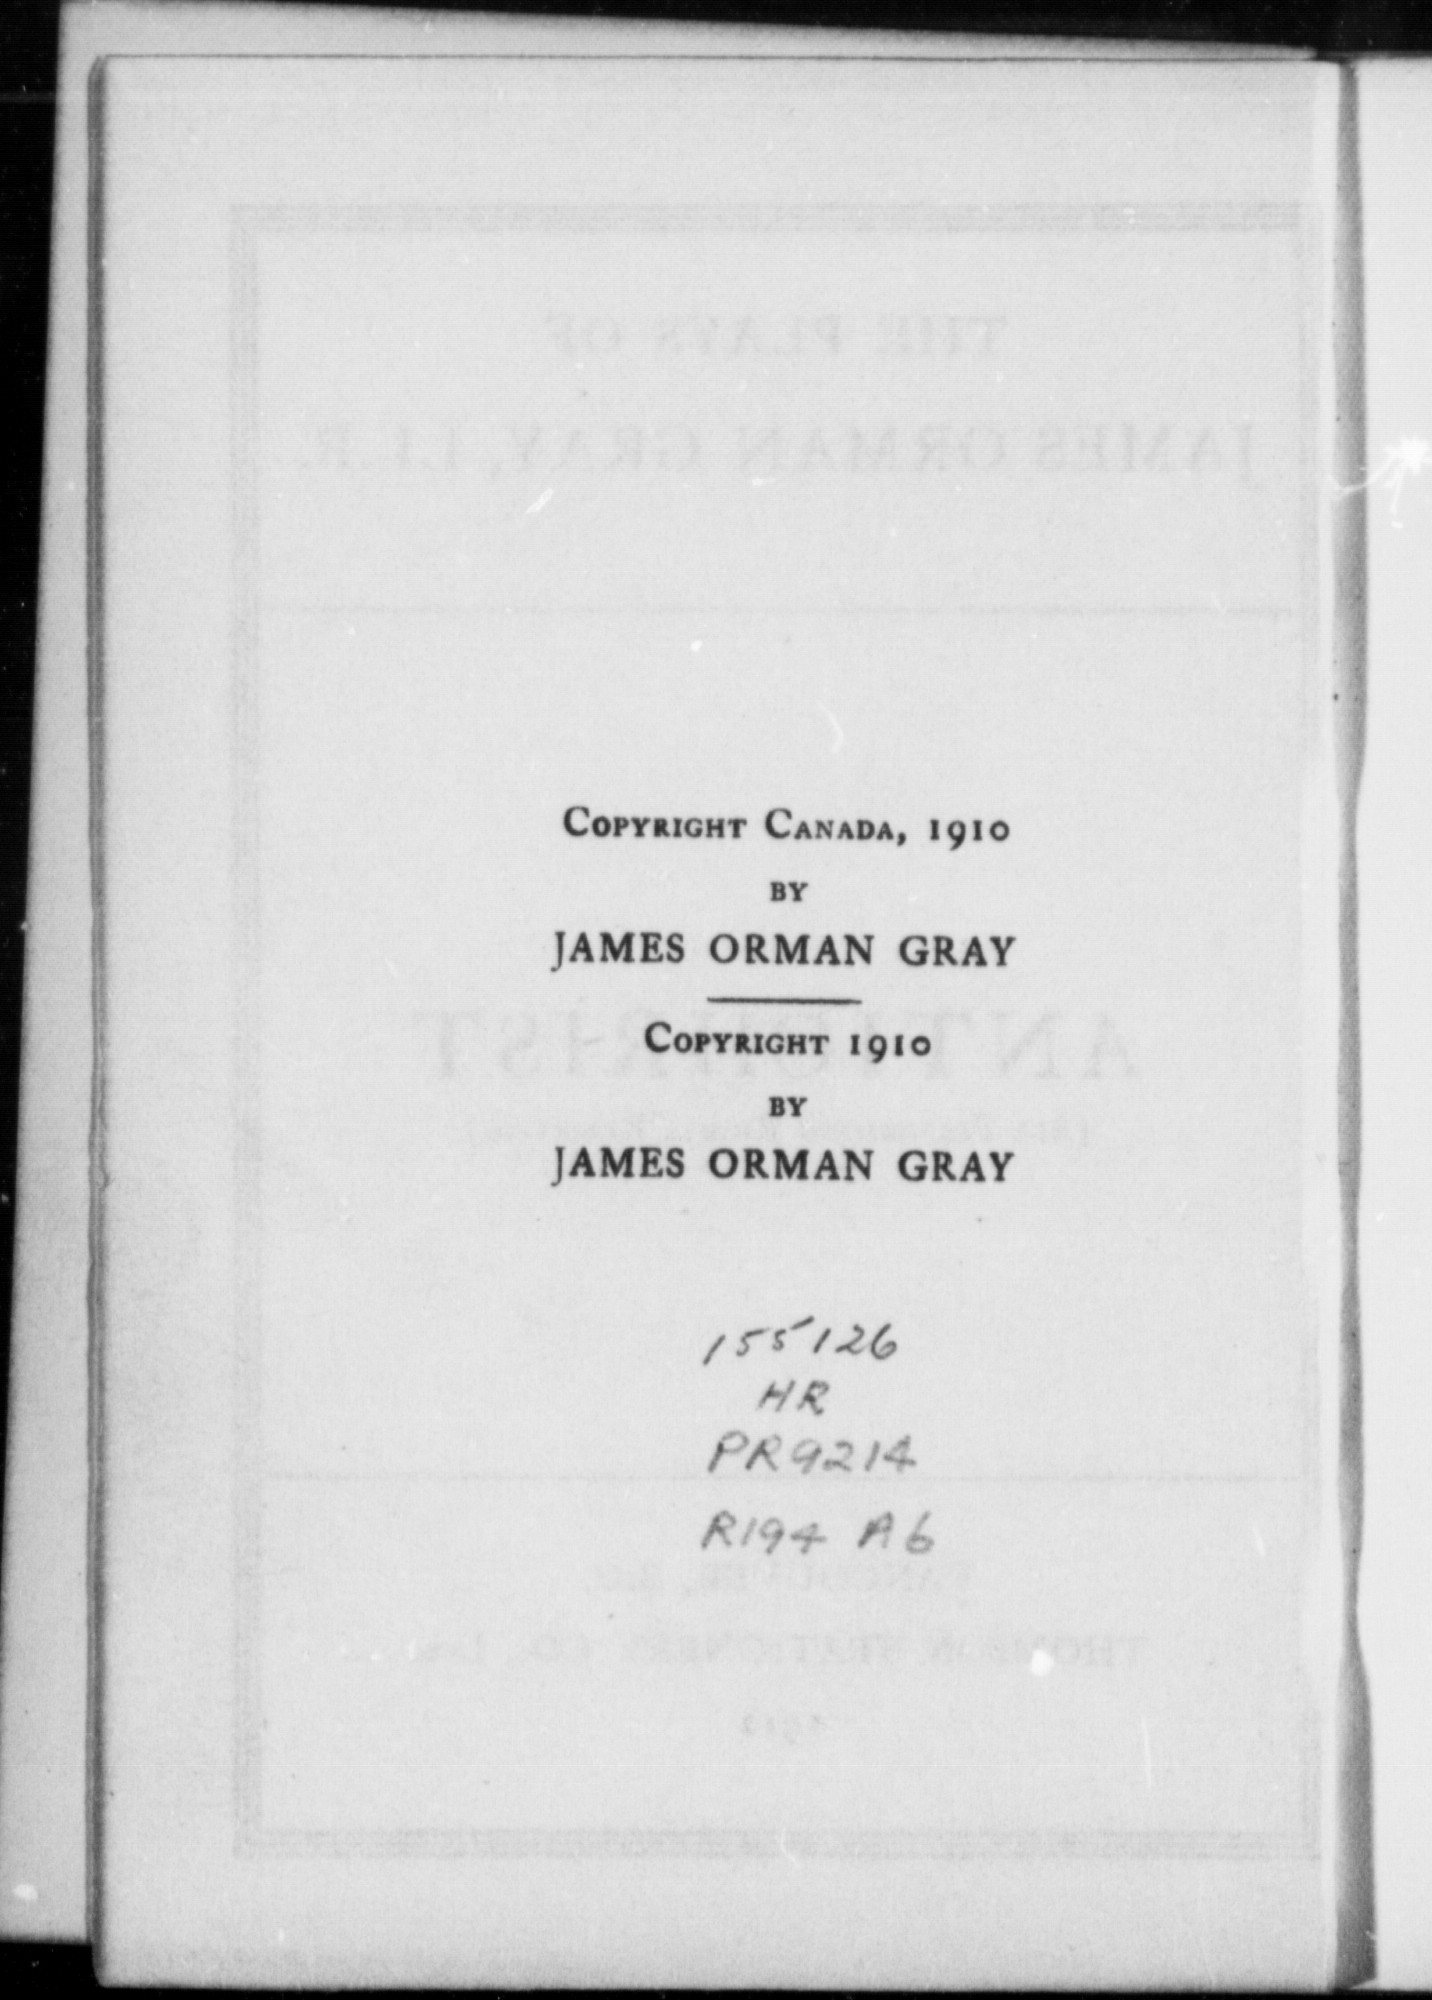 Copyright Canada, 1910
BY
JAMES ORMAN GRAY
Copyright 1910
BY
JAMES ORMAN GRAY
155126
HR
PR9214
R194 A6